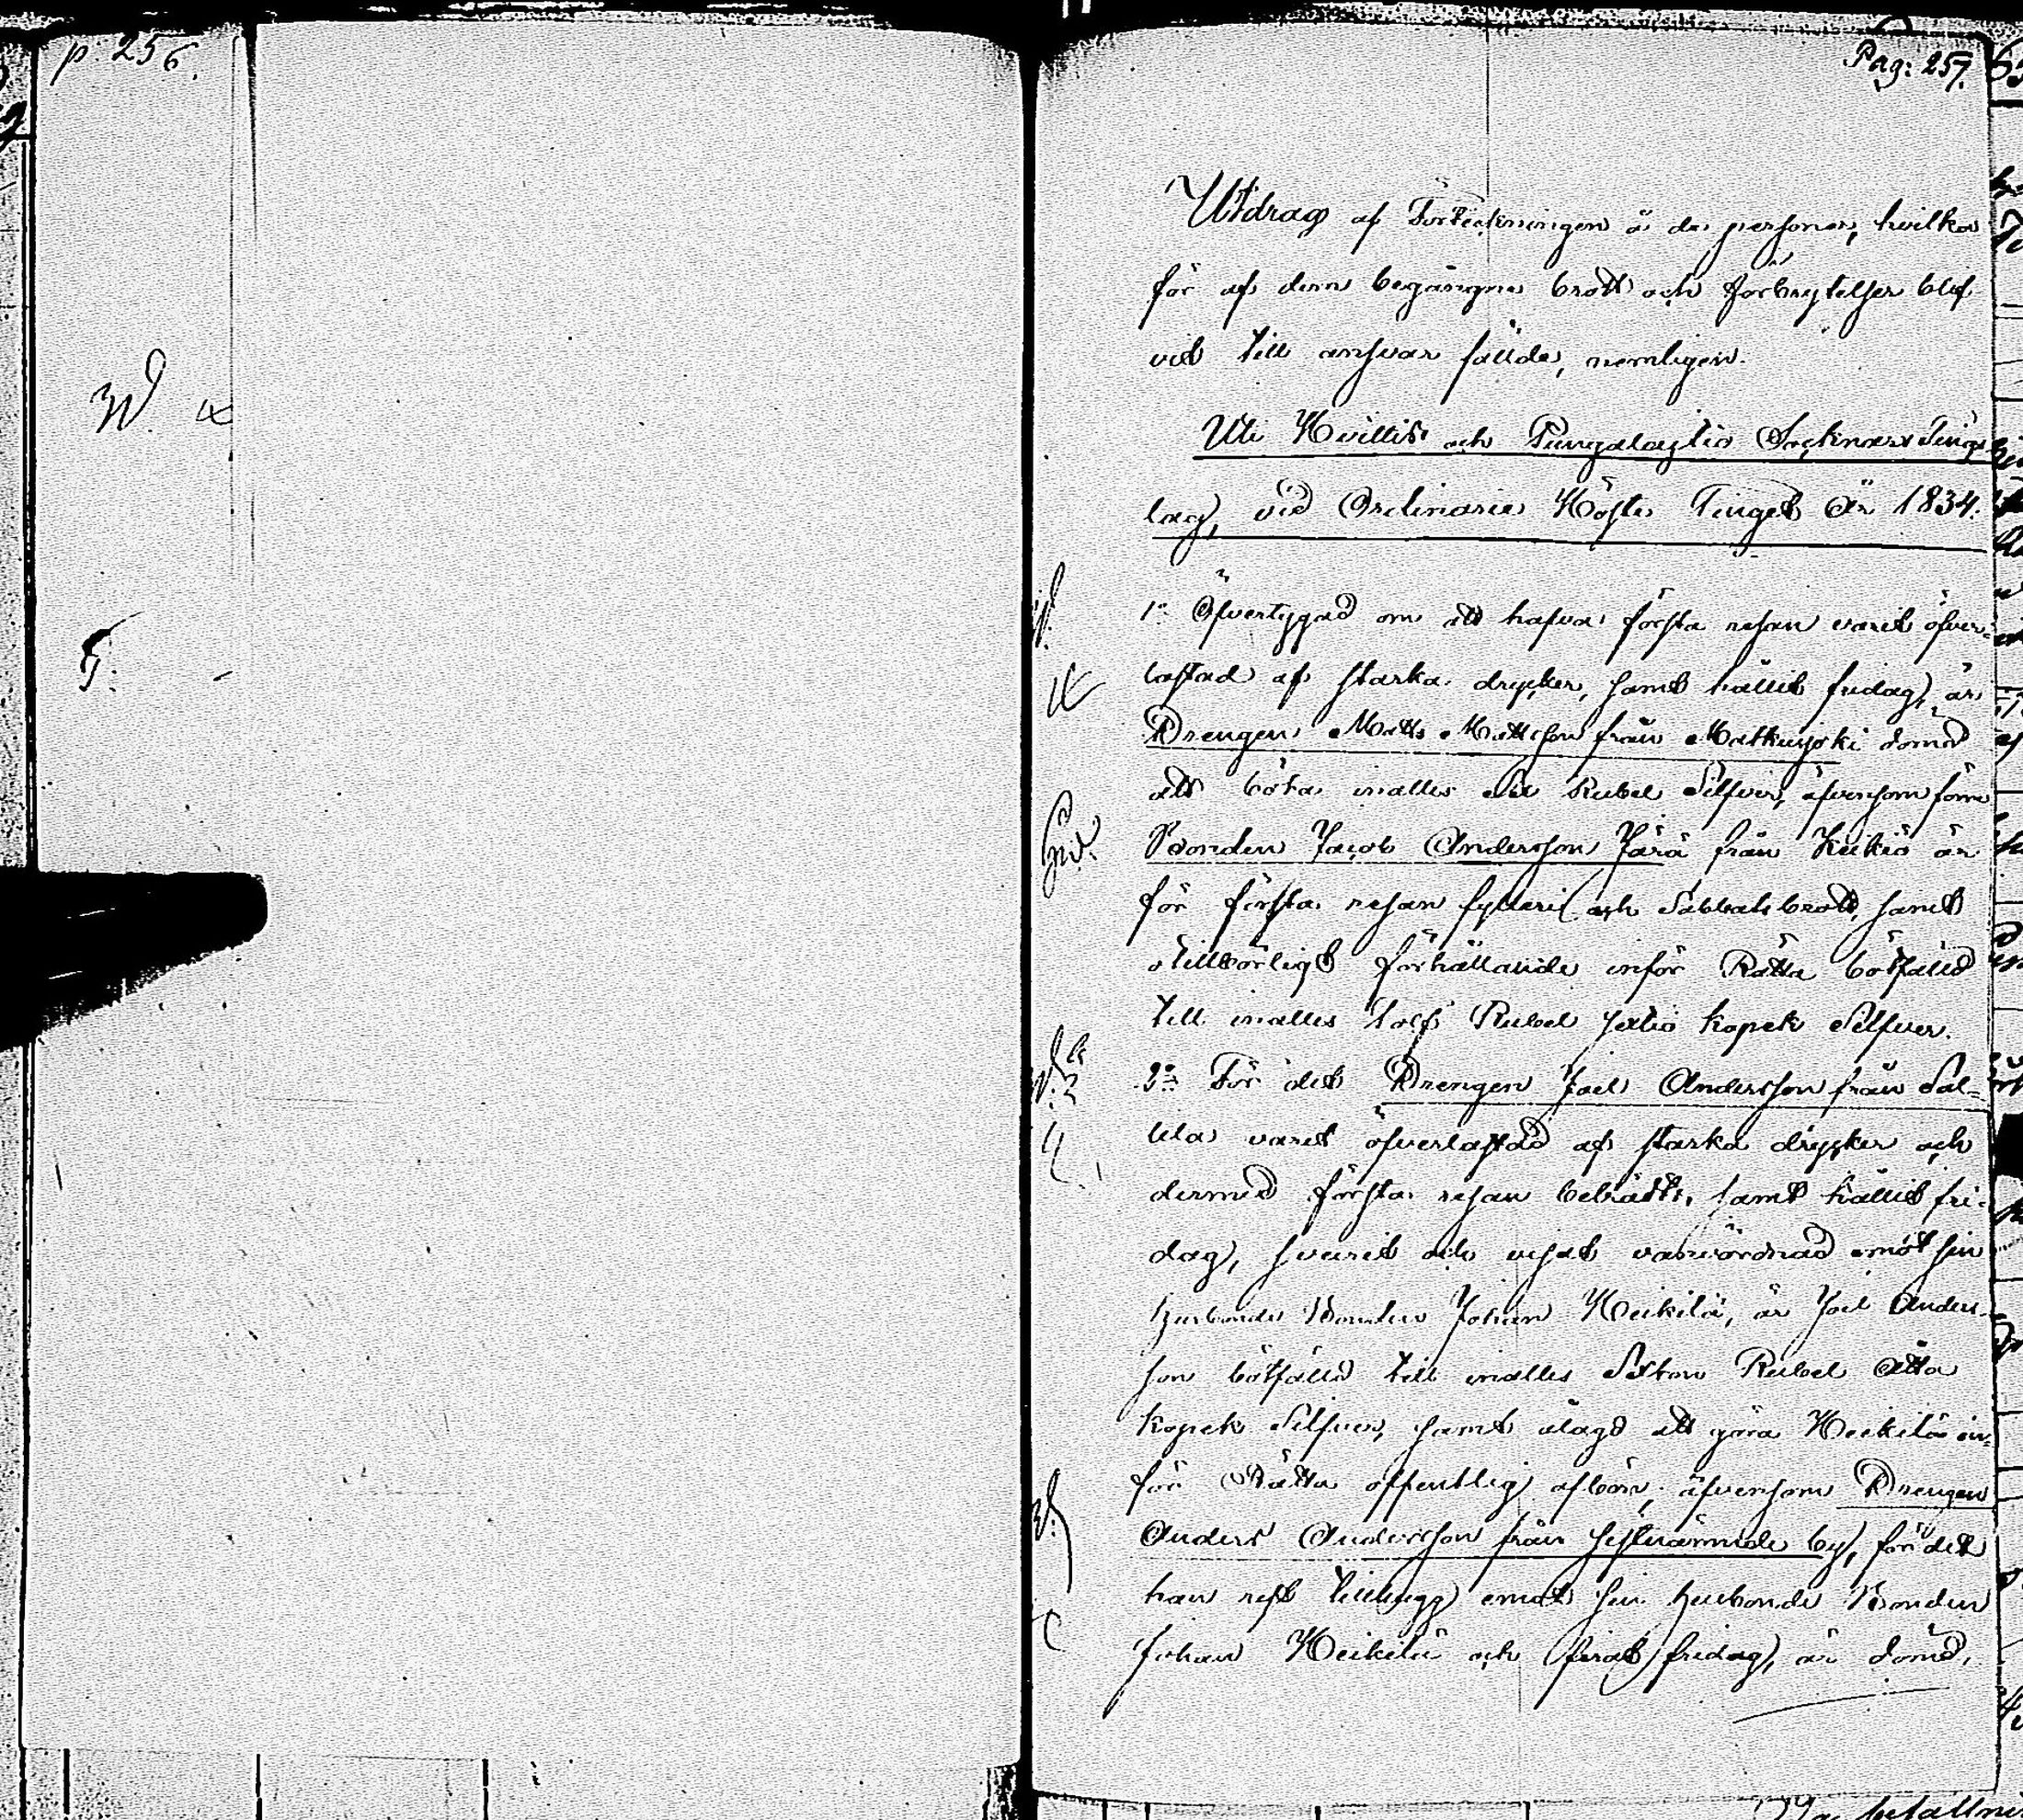 p. 256.
W.
F.
Pag: 257.
Utdrag af Förteckningen å de personer, hvilka
för af dem begångne brott och förbrytelser blif
vit till ansvar fällde, nemligen.
Uti Hvittis och Pungalaitio Socknars Tings
lag, vid Ordinarie Höste Tinget År 1834.
1o Öfvertygad om att hafva första resan varit öfver-
lastad af starka drycker, samt hållit fridag, är
Drengen Matts Mattsson från Matkusjoki dömd
att böta inalles Sex Rubel Silfver, äfvensom förre
Bonden Jacob Andersson Järä från Keikiö är
för första resan fylleri och Sabbatsbrott, samt
otillbörligt förhållande inför Rätta bötfälld
till inalles tolf Rubel sextio kopek Silfver.
2o För det Drengen Joel Andersson från Sal-
lila varit öfverlastad af starka drycker och
dermed första resan beträdts, samt hållit fri-
dag, svurit och visat vanvördnad emot sin
husbonde Bonden Johan Heikilä, är Joel Anders-
son bötfälld till inalles Sexton Rubel Åtta
kopek Silfver, samt ålagd att göra Heikilä in-
för Rätta offentlig afbön; äfvensom Drengen
Anders Andersson från sistnämnde by, för det
han rest tillhygg emot sin husbonde Bonden
Johan Heikilä och firat fridag, är dömd,